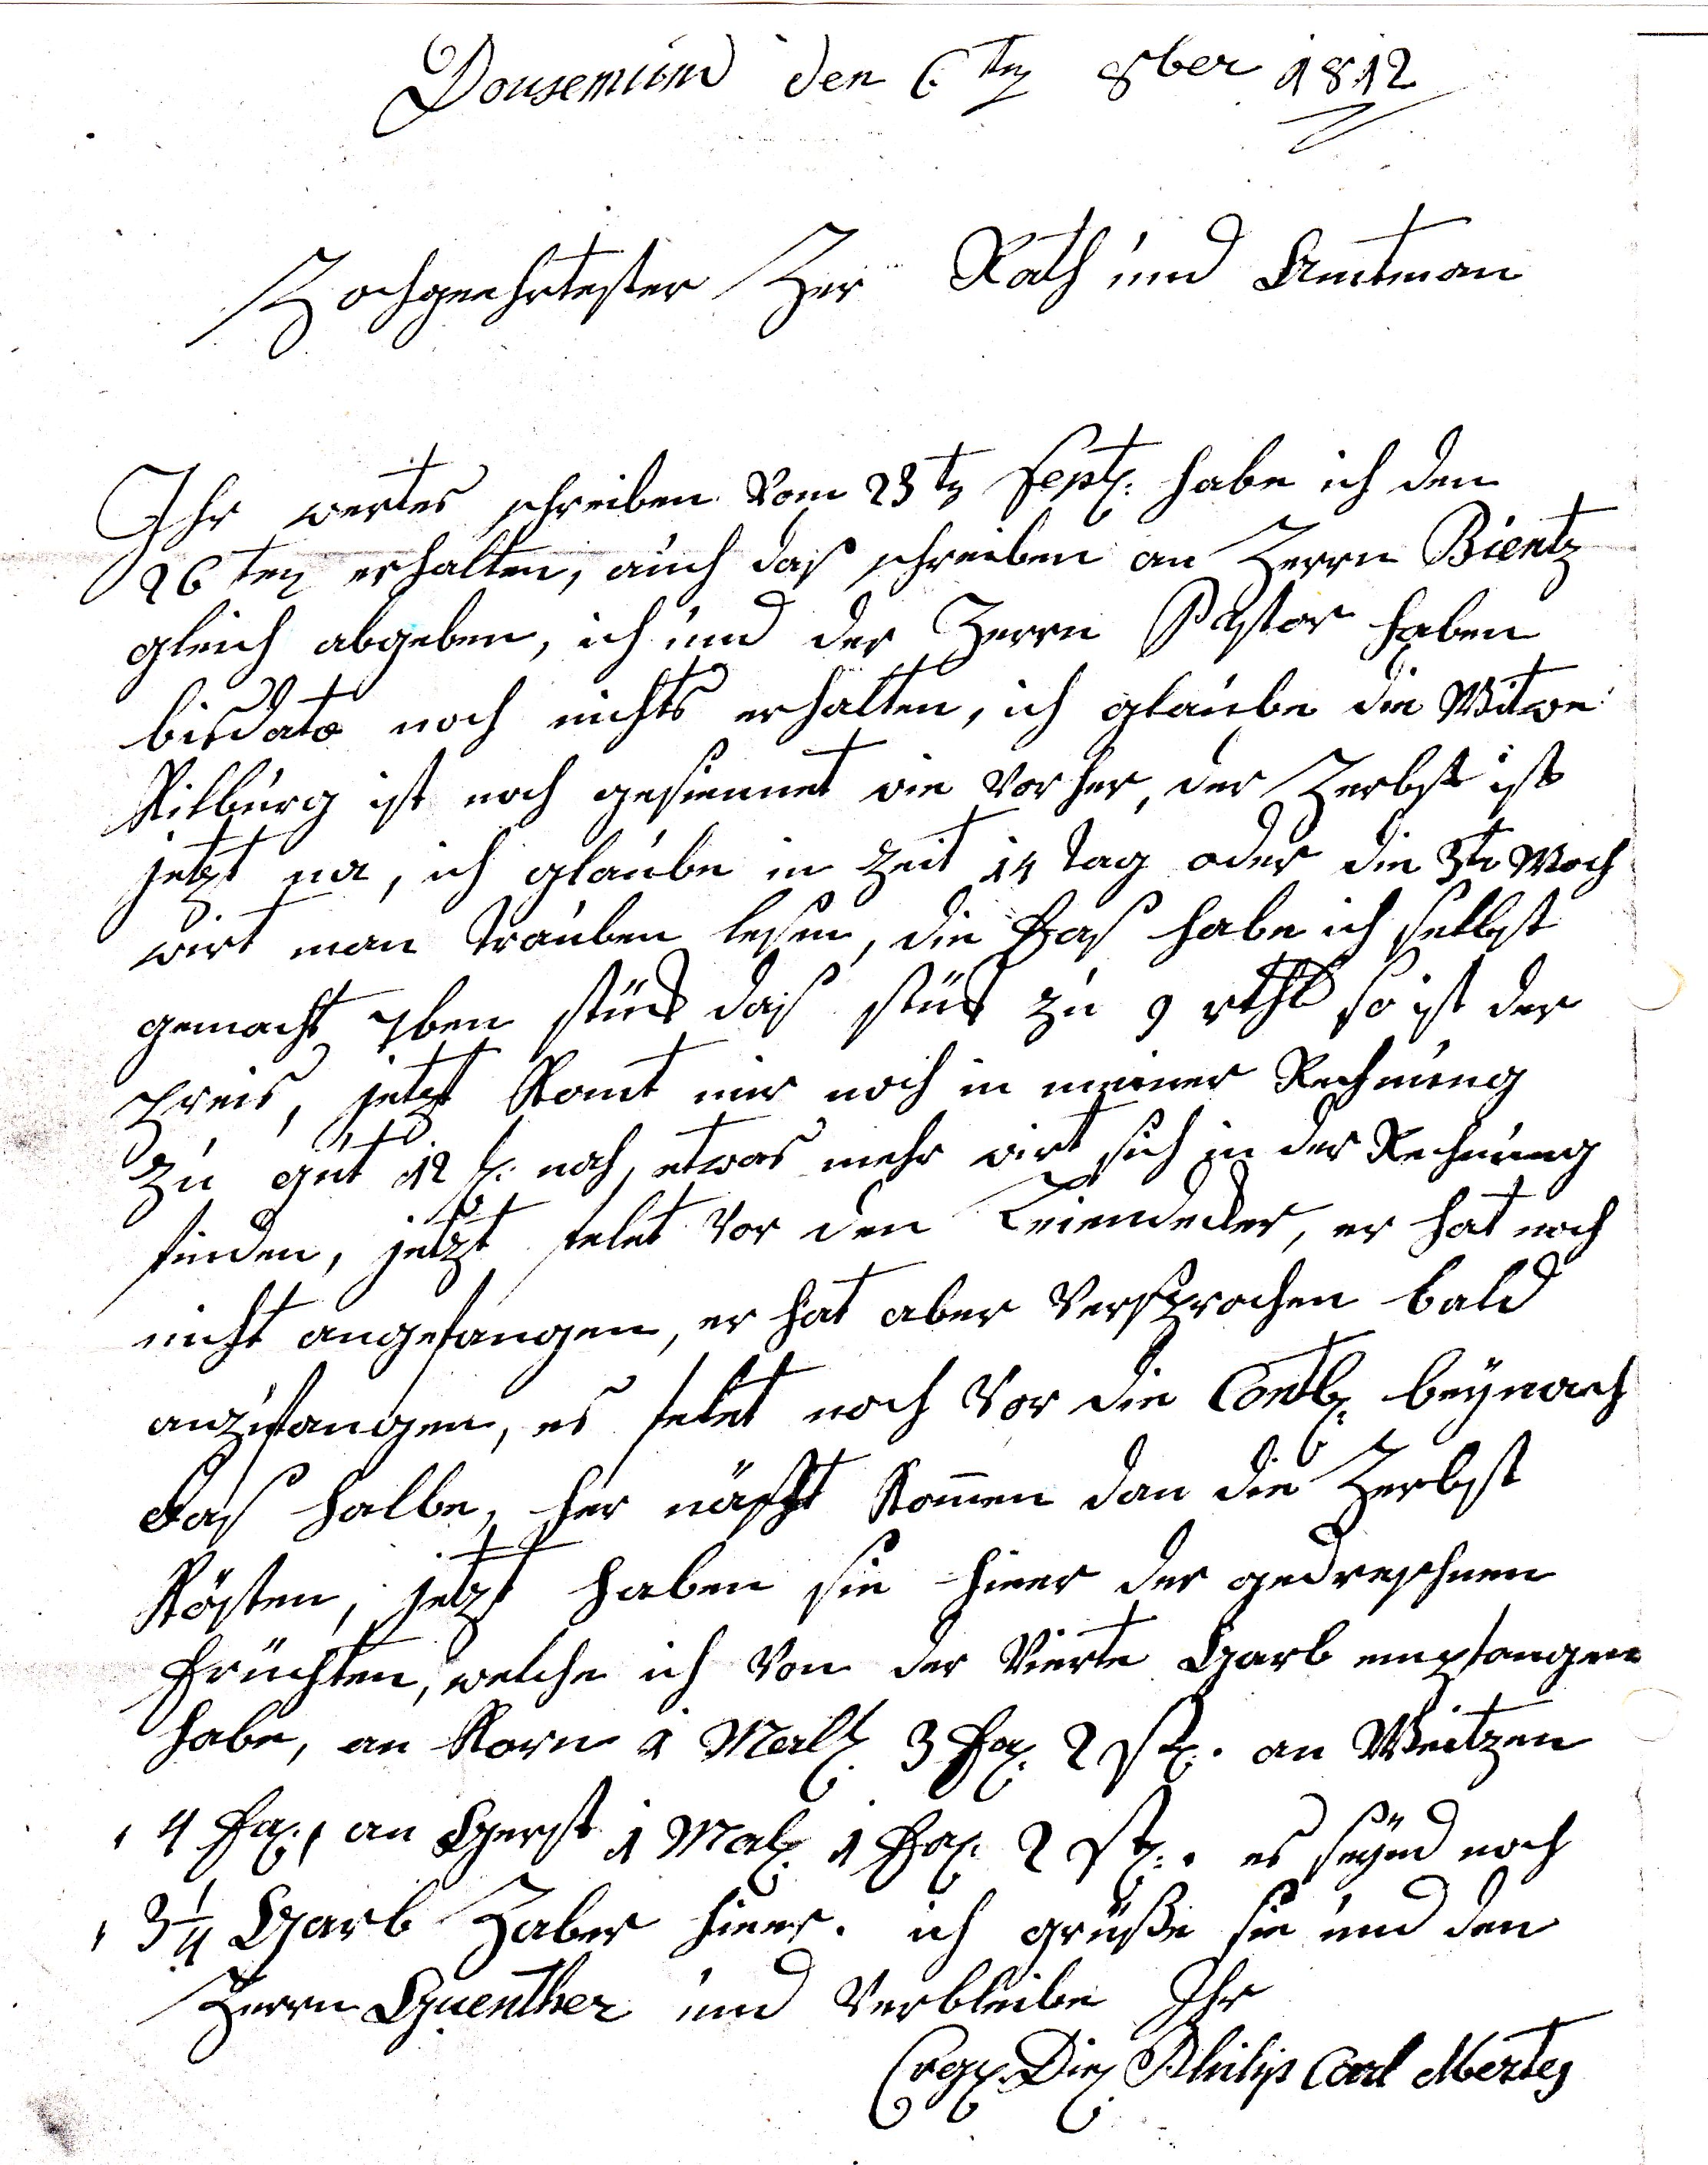 Dousemünd den 6ten 8ber 1812
Hochgeehrtester Her Rath und Amtman
Ihr wertes schreiben Vom 23tn Sept. habe ich den
26ten erhalten, auch das schreiben an Herrn Bientz
gleich abgeben, ich und der Herrn Pastor haben
bisdato noch nichts erhalten, ich glaube die Witwe
Kilburg ist noch gesiennet wie Vorher, der Herbst ist
jetzt na, ich glaube in Zeit 14 tag oder die 3te Woch
wirt man Trauben lesen, die Fas habe ich selbst
gemacht 7ben stück das stück zu 9 rthl so ist der
Preis, jetzt Komt mir noch in meiner Rechnung
zu gut 12 noch, etwas mehr wirt sich in der Rechnung
finden, jetzt felet Vor den Leiendecker, er hat noch
nicht angefangen, er hat aber Versprochen bald
anzufangen, es felet noch Vor die Contb. beynach
das halbe, her nächst Komen dan die Herbst
Kösten, jetzt haben sie hier der gedreschnen
Früchten, welche ich Von der Vierte Garb empfangen
habe, an Korn 1 Malt. 3 Fa. 2 St. an Weitzen
4 Fa., an Gerst 1 Mal. 1 Fa. 2 St.. es seynd noch
3 1/4 Garb Haber hier. ich grüße sie und den
Herrn Guenther und Verbleibe Ihr
Erg. Die. Philip Carl Mertes